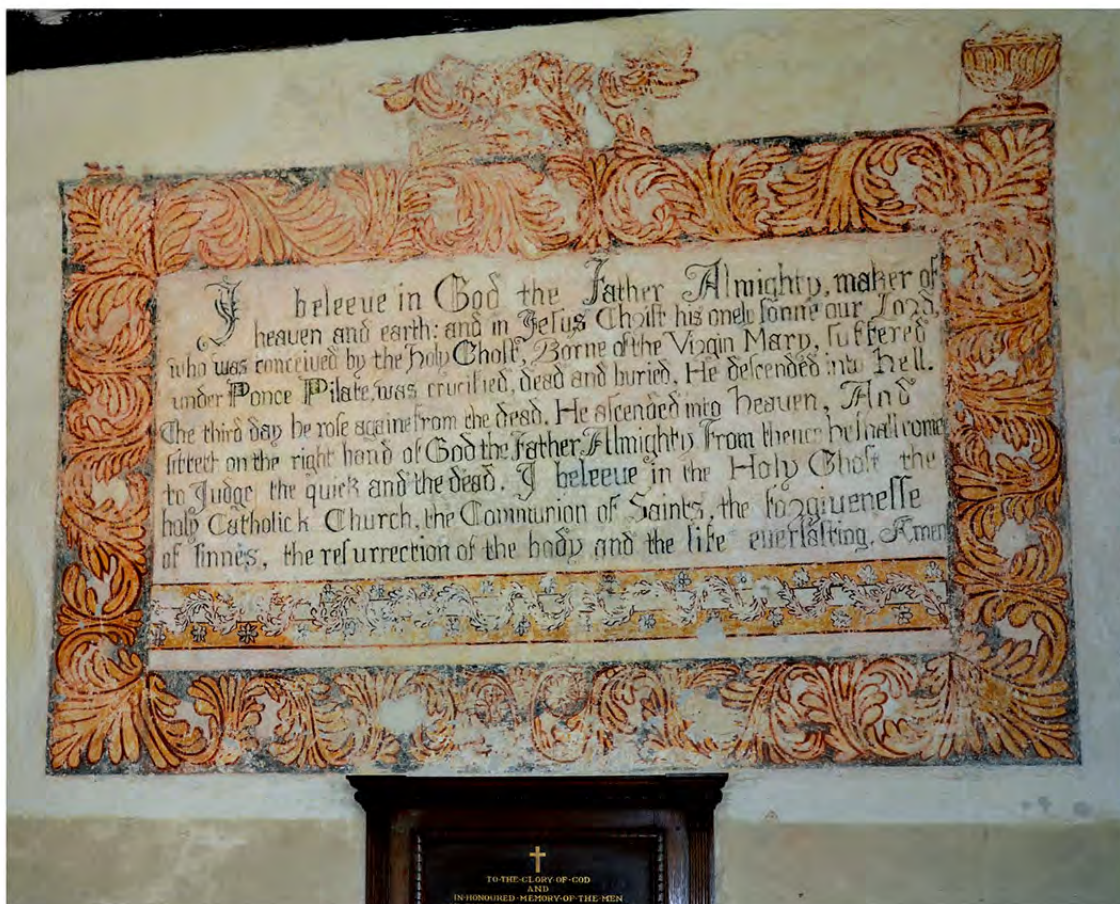 I beleeue in God the Father Almighty, maker of
heaven and earth: and in Jesus Christ his onely sonne our Lord,
who was conceived by the Holy Ghost, Borne of the Virgin Mary, suffered
under Ponce Pilate, was crucified, dead and buried, He descended into hell.
The third day he rose againe from the dead, He ascended into heaven, And
sitteth on the right hand of God the Father Almighty From thence he shall come
to Judge the quick and the dead. I beleeue in the Holy Ghost the
holy Catholick Church, the Communion of Saints, the forgiuenesse
of sinnes, the resurrection of the body and the life euerlasting, Amen
TO·THE·GLORY·OF·GOD
AND
IN·HONOURED·MEMORY·OF·THE·MEN